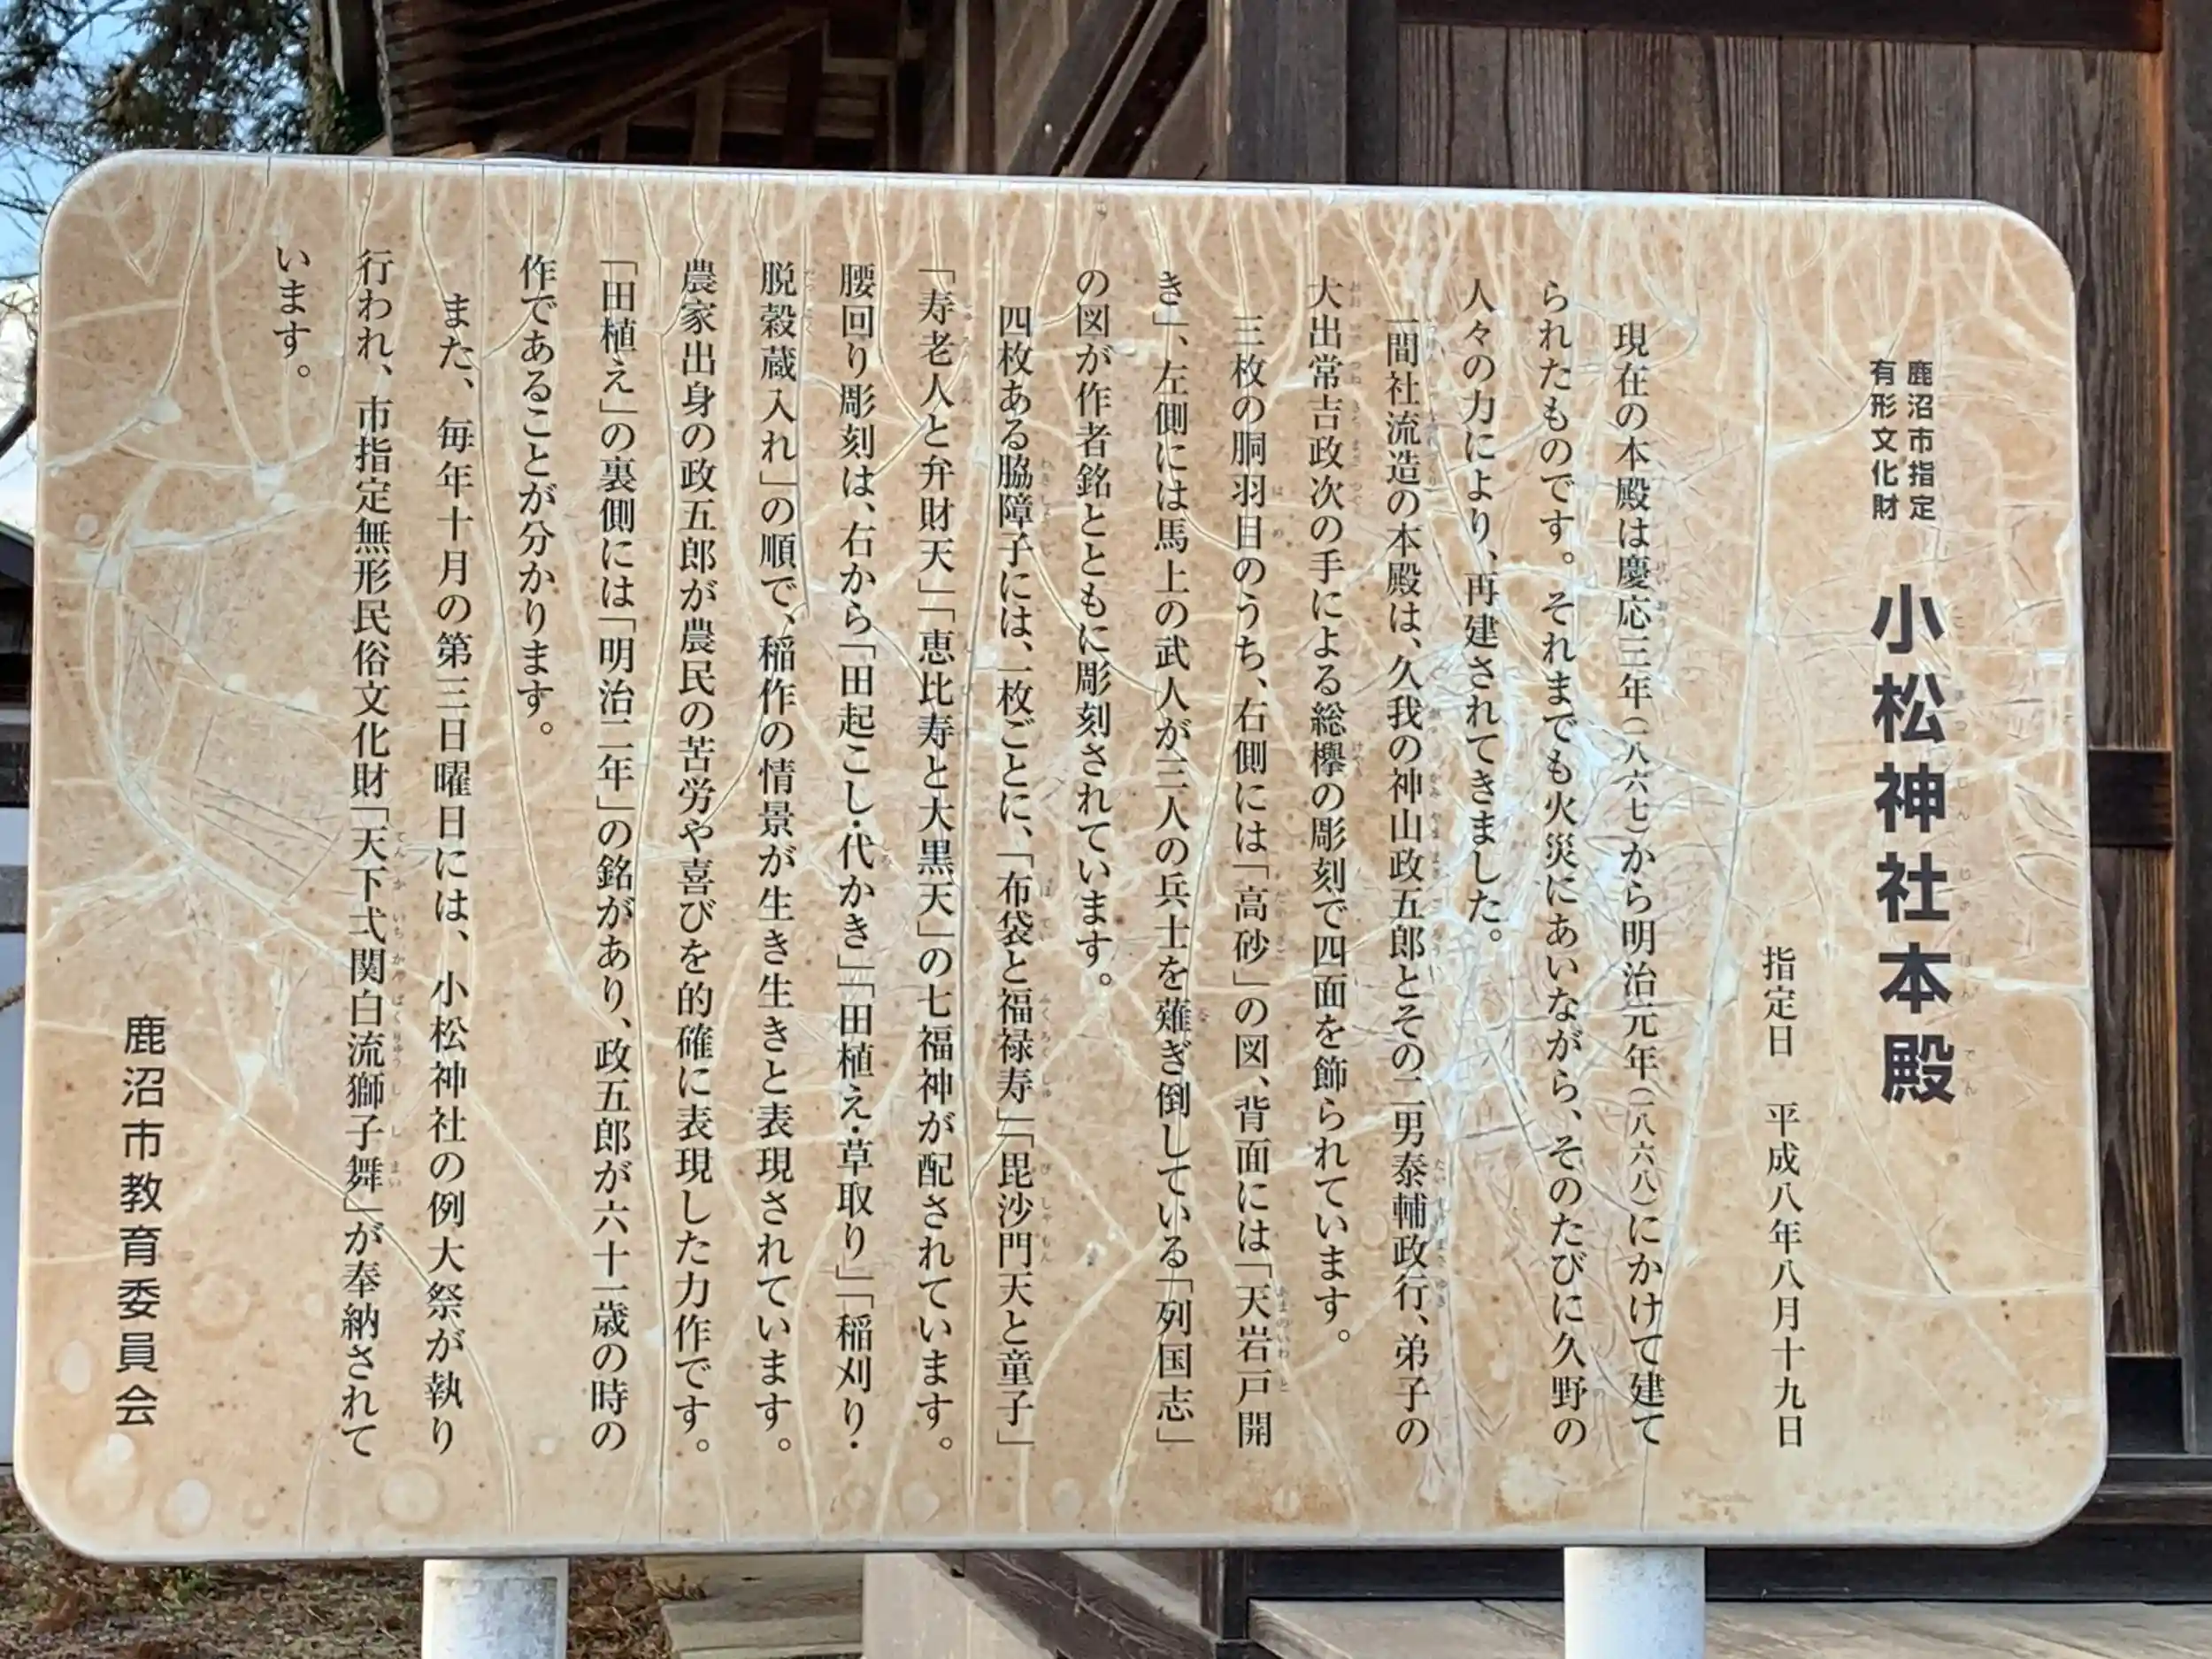 鹿沼市指定
有形文化財
小松神社本殿
指定日　平成八年八月十九日
現在の本殿は慶応三年(一八六七)から明治元年(一八六八)にかけて建て
られたものです。それまでも火災にあいながら、そのたびに久野の
人々の力により、再建されてきました。
一間社流造の本殿は、久我の神山政五郎とその二男泰輔政行、弟子の
大出常吉政次の手による総欅の彫刻で四面を飾られています。
三枚の胴羽目のうち、右側には「高砂」の図、背面には「天岩戸開
き」、左側には馬上の武人が三人の兵士を薙ぎ倒している「列国志」
の図が作者銘とともに彫刻されています。
四枚ある脇障子には、一枚ごとに、「布袋と福禄寿」「毘沙門天と童子」
「寿老人と弁財天」「恵比寿と大黒天」の七福神が配されています。
腰回り彫刻は、右から「田起こし・代かき」「田植え・草取り」「稲刈り・
脱穀蔵入れ」の順で、稲作の情景が生き生きと表現されています。
農家出身の政五郎が農民の苦労や喜びを的確に表現した力作です。
「田植え」の裏側には「明治二年」の銘があり、政五郎が六十一歳の時の
作であることが分かります。
また、毎年十月の第三日曜日には、小松神社の例大祭が執り
行われ、市指定無形民俗文化財「天下弌関白流獅子舞」が奉納されて
います。
鹿沼市教育委員会